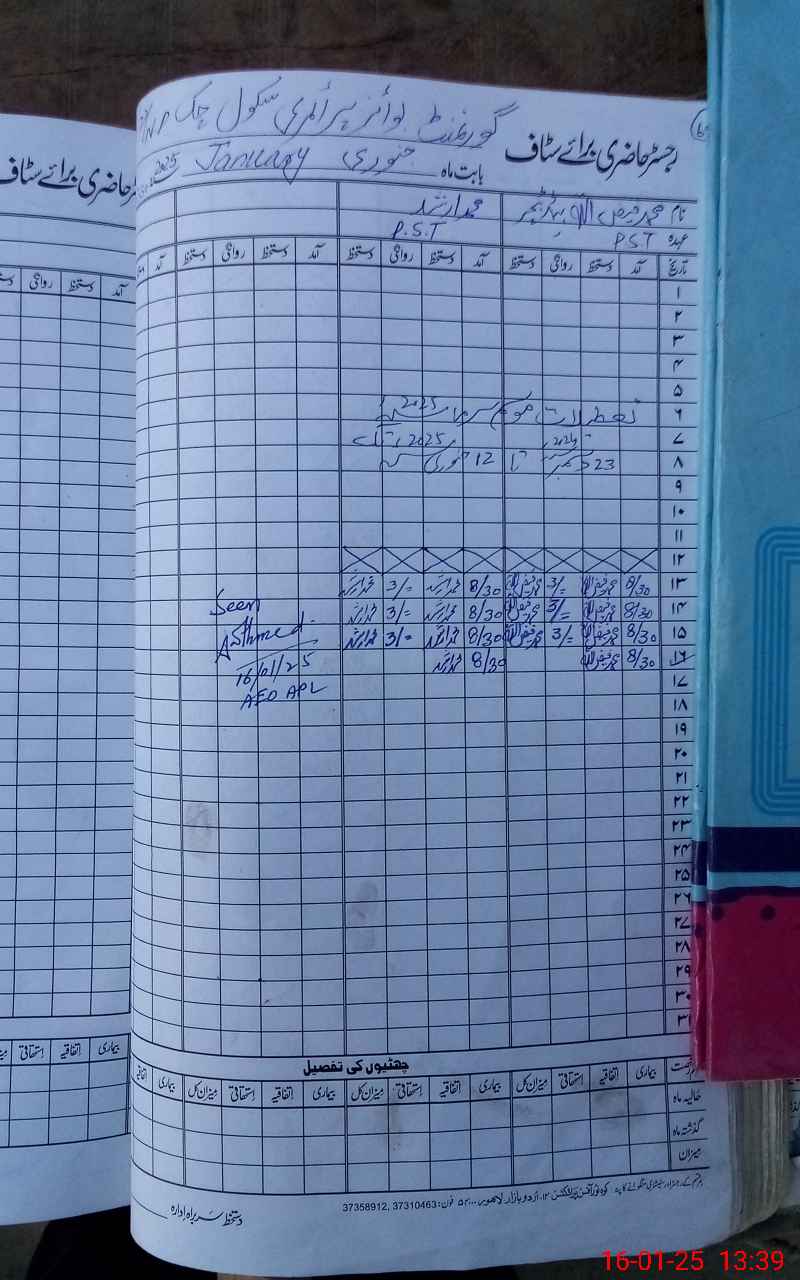 رجسٹر حاضری برائے سٹاف
گورنمنٹ بوائز پرائمری سکول چک
بابت ماہ جنوری January 2025
نام محمد فیض اللہ ہیڈ ٹیچر محمد ارشد
عہدہ PST P.S.T
تاریخ آمد دستخط روانگی دستخط آمد دستخط روانگی دستخط آمد دستخط روانگی دستخط آمد
۱
۲
۳
۴
۵
۶ تعطیلات موسم سرما 2025
۷
۸ 23 دسمبر 2024 تا 12 جنوری 2025 تک
۹
۱۰
۱۱
۱۲
۱۳ 8/30 محمد فیض اللہ 3/= محمد فیض اللہ 8/30 محمد ارشد 3/= محمد ارشد
۱۴ 8/30 محمد فیض اللہ 3/= محمد فیض اللہ 8/30 محمد ارشد 3/= محمد ارشد
۱۵ 8/30 محمد فیض اللہ 3/= محمد فیض اللہ 8/30 محمد ارشد 3/= محمد ارشد
۱۶ 8/30 محمد فیض اللہ 8/30 محمد ارشد
Seen
16/01/25
AEO APL
۱۷
۱۸
۱۹
۲۰
۲۱
۲۲
۲۳
۲۴
۲۵
۲۶
۲۷
۲۸
۲۹
۳۰
۳۱
چھٹیوں کی تفصیل
بیماری اتفاقیہ استحقاقی میزان کل بیماری اتفاقیہ استحقاقی میزان کل بیماری اتفاقیہ استحقاقی میزان کل بیماری
حالیہ ماہ
گذشتہ ماہ
میزان
اردو بازار لاہور فون: 37310463, 37358912
دستخط سربراہ ادارہ
رجسٹر حاضری برائے سٹاف
آمد دستخط روانگی
بیماری اتفاقیہ استحقاقی
16-01-25 13:39